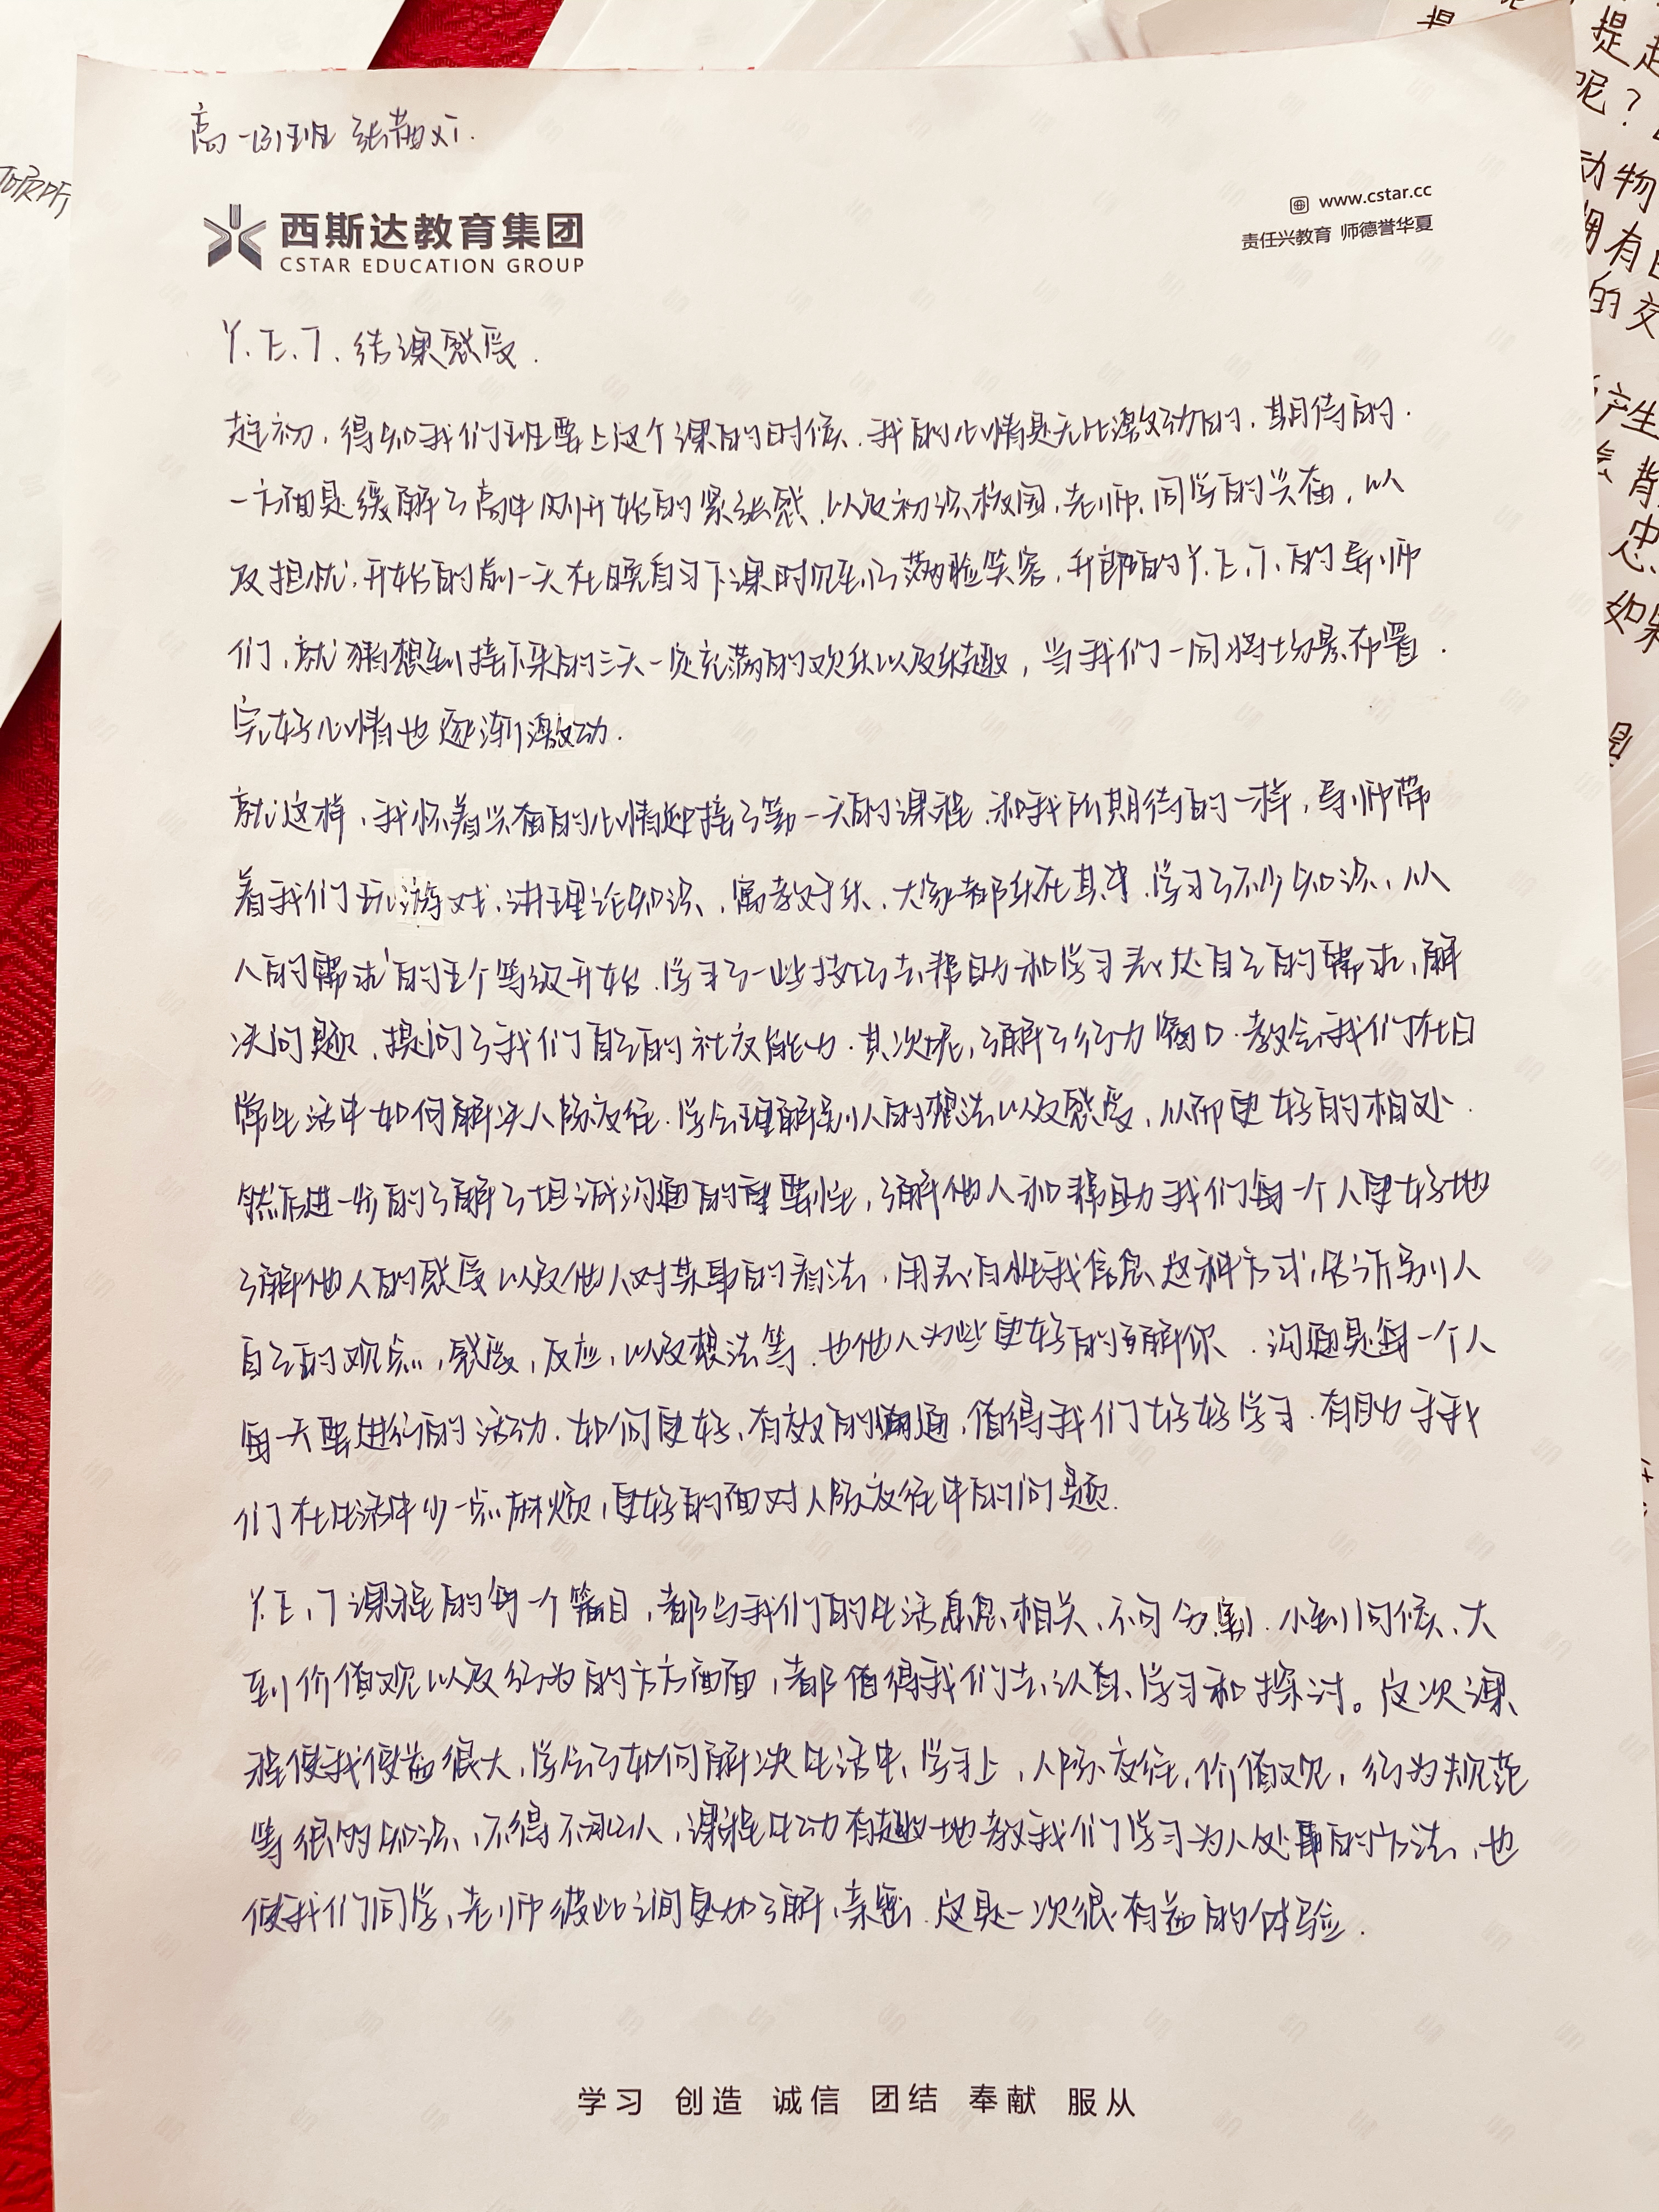 高一 班 张茜
西斯达教育集团
CSTAR EDUCATION GROUP
www.cstar.cc
责任兴教育 师德誉华夏
Y.E.T. 结课感受.
起初,得知我们班要上这个课的时候.我的心情是无比激动的,期待的.
一方面是缓解了高中刚开始的紧张感,以及初识校园,老师,同学的兴奋,以
及担忧,开始的前一天在晚自习下课时见到了满脸笑容,开朗的Y.E.T.的导师
们,就猜想到接下来的三天一定充满的欢乐以及乐趣,当我们一同将场景布置.
完好心情也逐渐激动.
就这样,我怀着兴奋的心情迎接了第一天的课程.和我所期待的一样,导师带
着我们玩游戏,讲理论知识,寓教于乐,大家都乐在其中.学习了不少知识,从
人的需求的五个等级开始.学习了一些技巧去帮助和学习表达自己的需求,解
决问题,提问了我们自己的社交能力.其次呢,了解了行为窗口.教会我们在日
常生活中如何解决人际交往.学会理解别人的想法以及感受,从而更好的相处.
然后进一步的了解了坦诚沟通的重要性,了解他人和帮助我们每一个人更好地
了解他人的感受以及他人对某事的看法,用表白性我信息这种方式,告诉别人
自己的观点,感受,反应,以及想法等.也他人为些更好的了解你.沟通是每一个人
每一天要进行的活动.如何更好,有效的沟通,值得我们好好学习.有助于我
们在生活中少一点麻烦,更好的面对人际交往中的问题.
Y.E.T课程的每一个篇目,都与我们的生活息息相关、不可分割.小到问候、大
到价值观以及行为的方方面面,都值得我们去认真、学习和探讨。这次课
程使我受益很大,学会了如何解决生活中、学习上,人际交往,价值观,行为规范
等很多的知识,不得不承认,课程生动有趣地教我们学习为人处事的方法,也
使我们同学、老师彼此之间更加了解,亲密.这是一次很有益的体验.
学习 创造 诚信 团结 奉献 服从